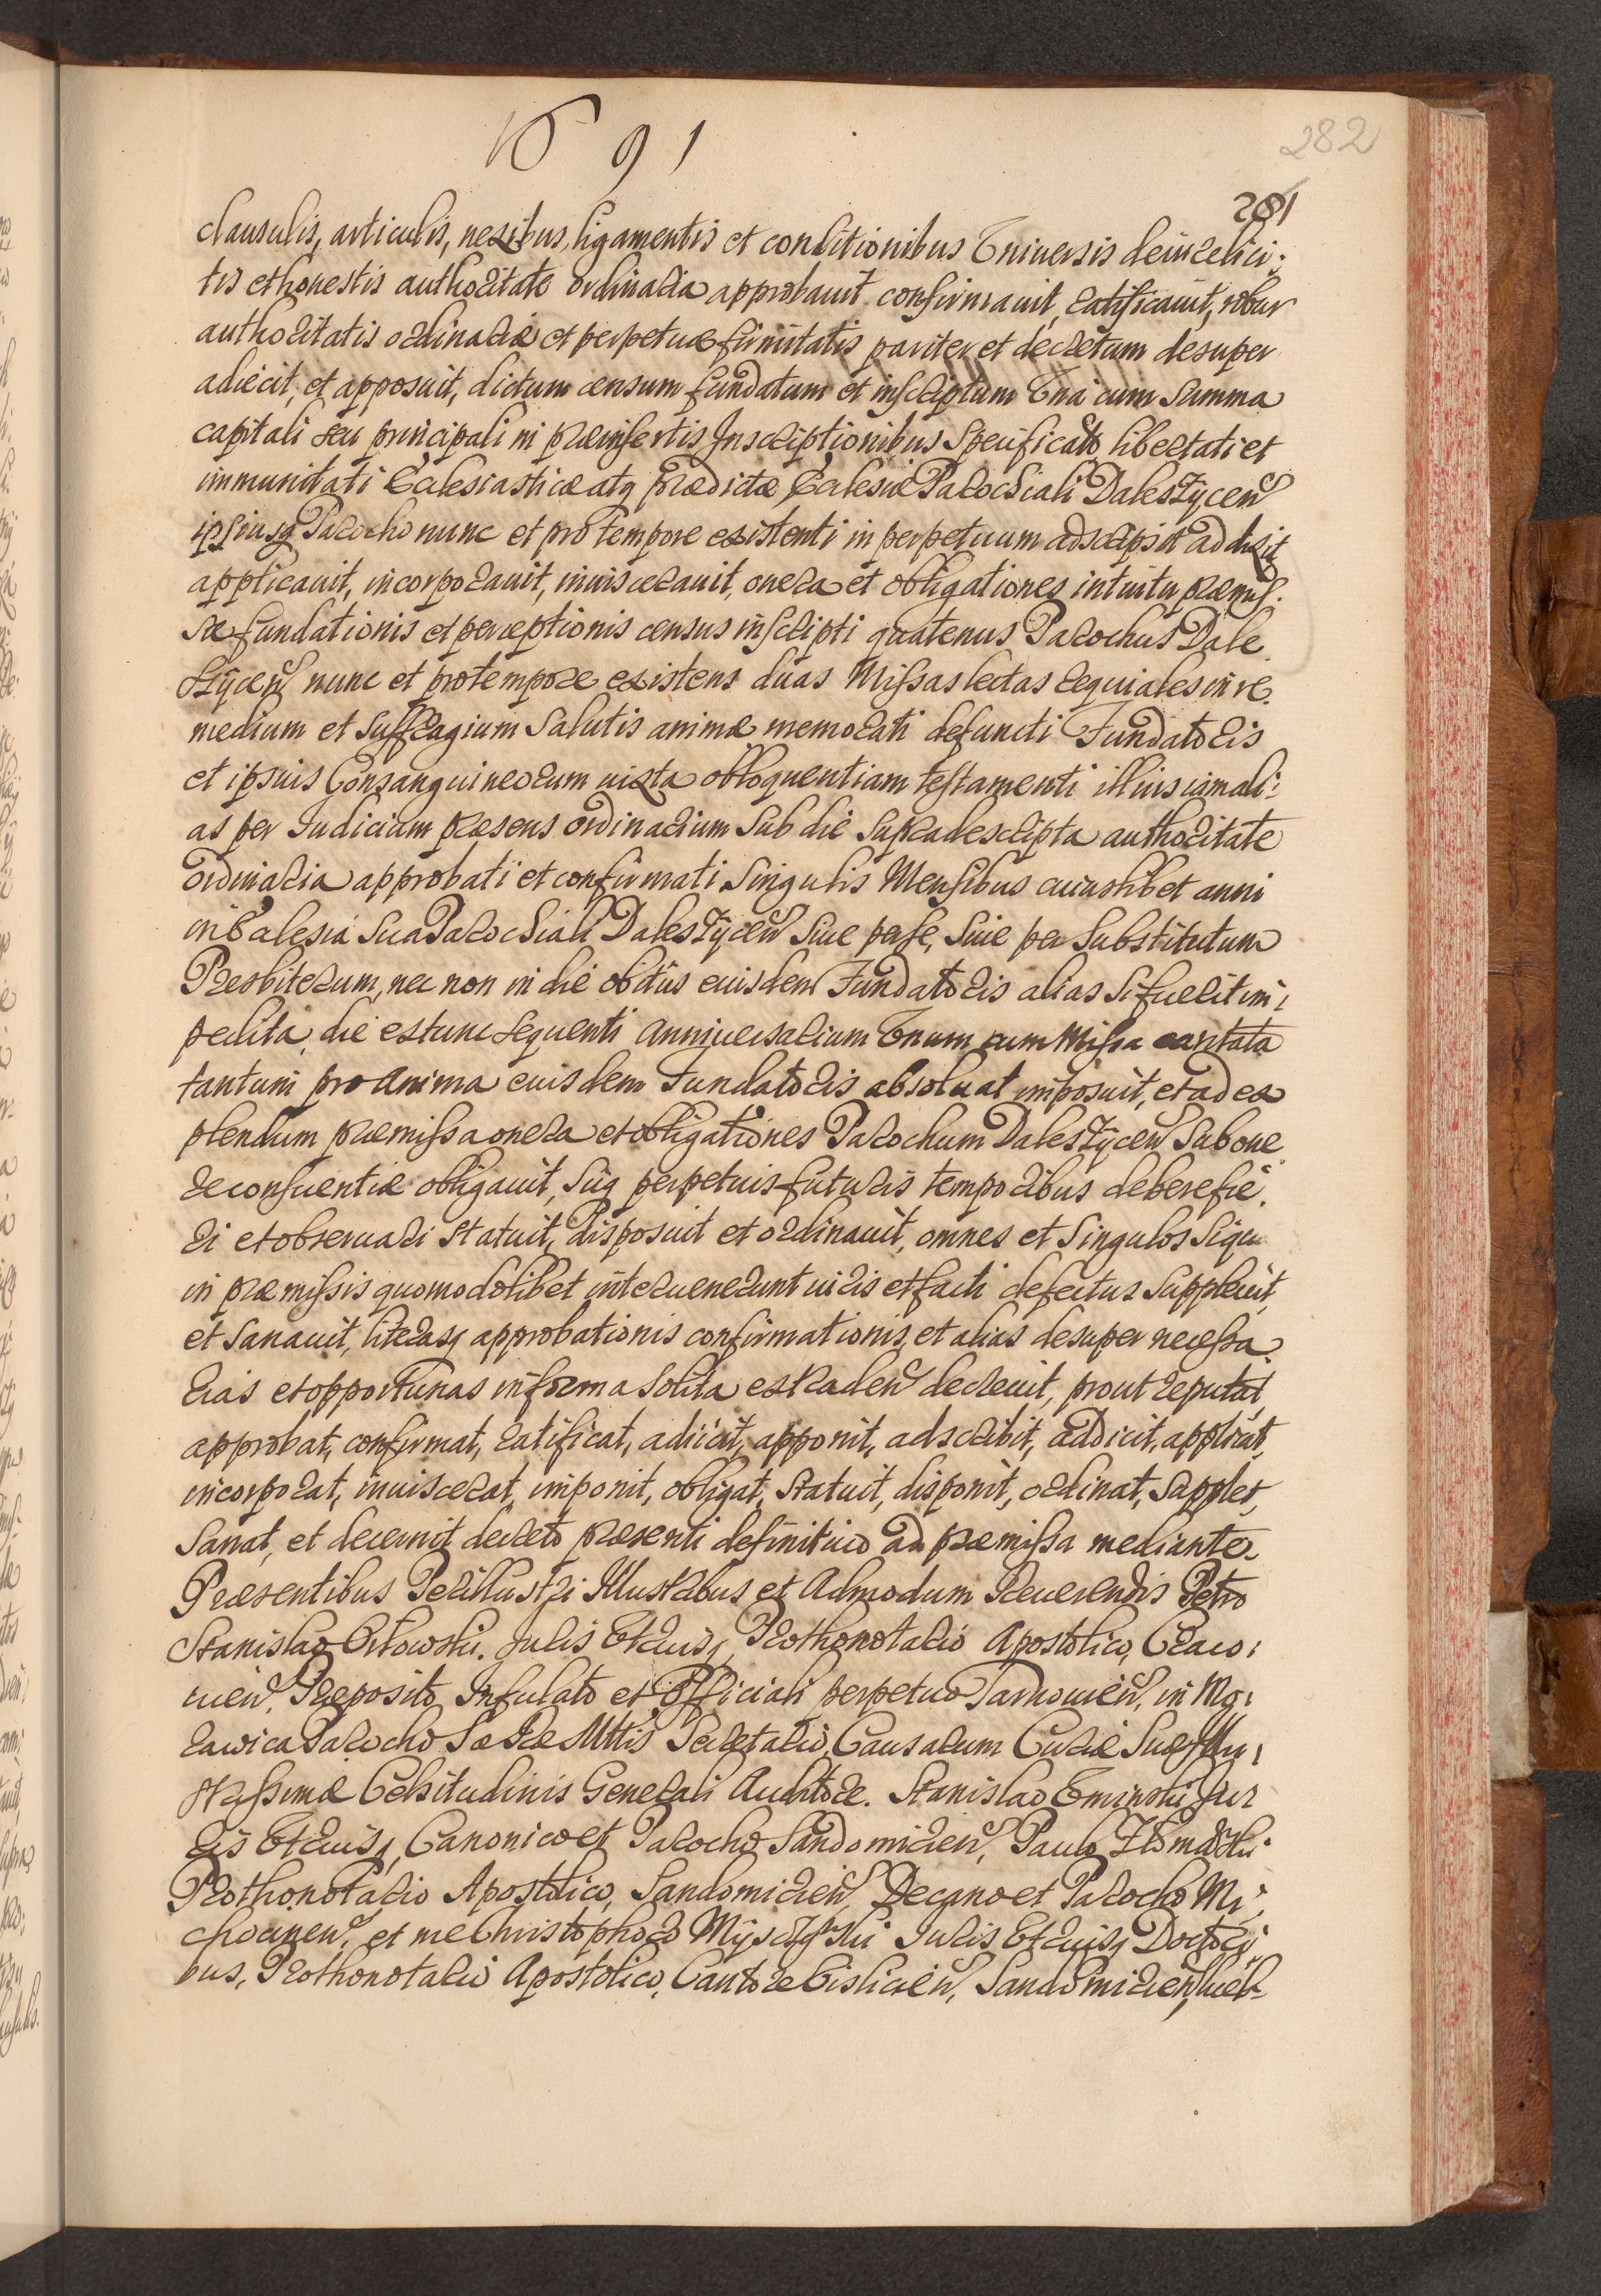 1691
282
281
clausulis, articulis, nexibus, ligamentis et conditionibus Universis de iure lici:
tis et honestis authoritate ordinaria approbauit confirmauit, ratificauit, robur
authoritatis ordinariæ et perpetuæ firmitatis pariter et decretum desuper
adiecit, et apposuit, dictum censum fundatum et inscriptum Unà cum Summa
capitali seu principali in præinsertis Inscriptionibus Specificato libertati et
immunitati Ecclesiasticæ atq prædictæ Ecclesiæ Parochiali Daleszÿcen
ipsiusq Parocho nunc et pro tempore existenti in perpetuum adscripsit addixit
applicauit, incorporauit, inuiscerauit, onera et obligationes intuitu præmis:
sæ fundationis et perceptionis census inscripti quatenus Parochus Dale
szÿcen nunc et pro tempore existens duas Missas lectas requiales in re
medium et Suffragium Salutis animæ memorati defuncti Fundatoris
et ipsius Consanguineorum iuxta obloquentiam testamenti illius iam ali:
as per Iudicium præsens ordinarium Sub die Supradescripta authoritate
ordinaria approbati et confirmati Singulis Mensibus cuiuslibet anni
in Ecclesia Sua Parochiali Daleszÿcen Siue per se, Siue per Substitutum
Presbiterum, nec non in die obitus eiusdem Fundatoris alias Si fuerit im:
pedita, die extunc Sequenti Anniuersarium Unum cum Missa cantata
tantum pro Anima eiusdem Fundatoris absoluat imposuit, et ad ex
plendum præmissa onera et obligationes Parochum Daleszÿcen Sub one
re conscientiæ obligauit, Sicq perpetuis futuris temporibus debere fie
ri et obseruari Statuit, disposuit et ordinauit, omnes et Singulos Siqui
in præmissis quomodolibet interuenerunt iuris et facti defectus Suppleuit,
et Sanauit, literasq approbationis confirmationis, et alias desuper necessa
rias et opportunas in forma Solita extraden decreuit, prout reputat,
approbat, confirmat, ratificat, adiicit, apponit, adscribit, addicit, applicat,
incorporat, inuiscerat, imponit, obligat, Statuit, disponit, ordinat, Supplet,
Sanat, et decernit decreto præsenti definitiuo ad præmissa mediante.
Præsentibus Perillustri Illustribus et Admodum Reuerendis Petro
Stanislao Orłowski. Iuris Utriusq, Prothonotario Apostolico, Craco:
uien, Præposito Infulato et Officiali perpetuo Tarnouien, in Mo:
rawica Parocho Sæ Ræ Mttis Secretario, Causarum Curiæ Suæ Illu:
strissimæ Celsitudinis Generali Auditore. Stanislao Uminski Iu
ris Utriusq, Canonico et Parocho Sandomirien, Paulo
Prothonotario Apostolico, Sandomirien, Decano et Parocho Mi:
chouien, et me Christophoro Iuris Utriusq Doctori
bus, Prothonotario Apostolico, Cantore Vislicien, Sandomirien,